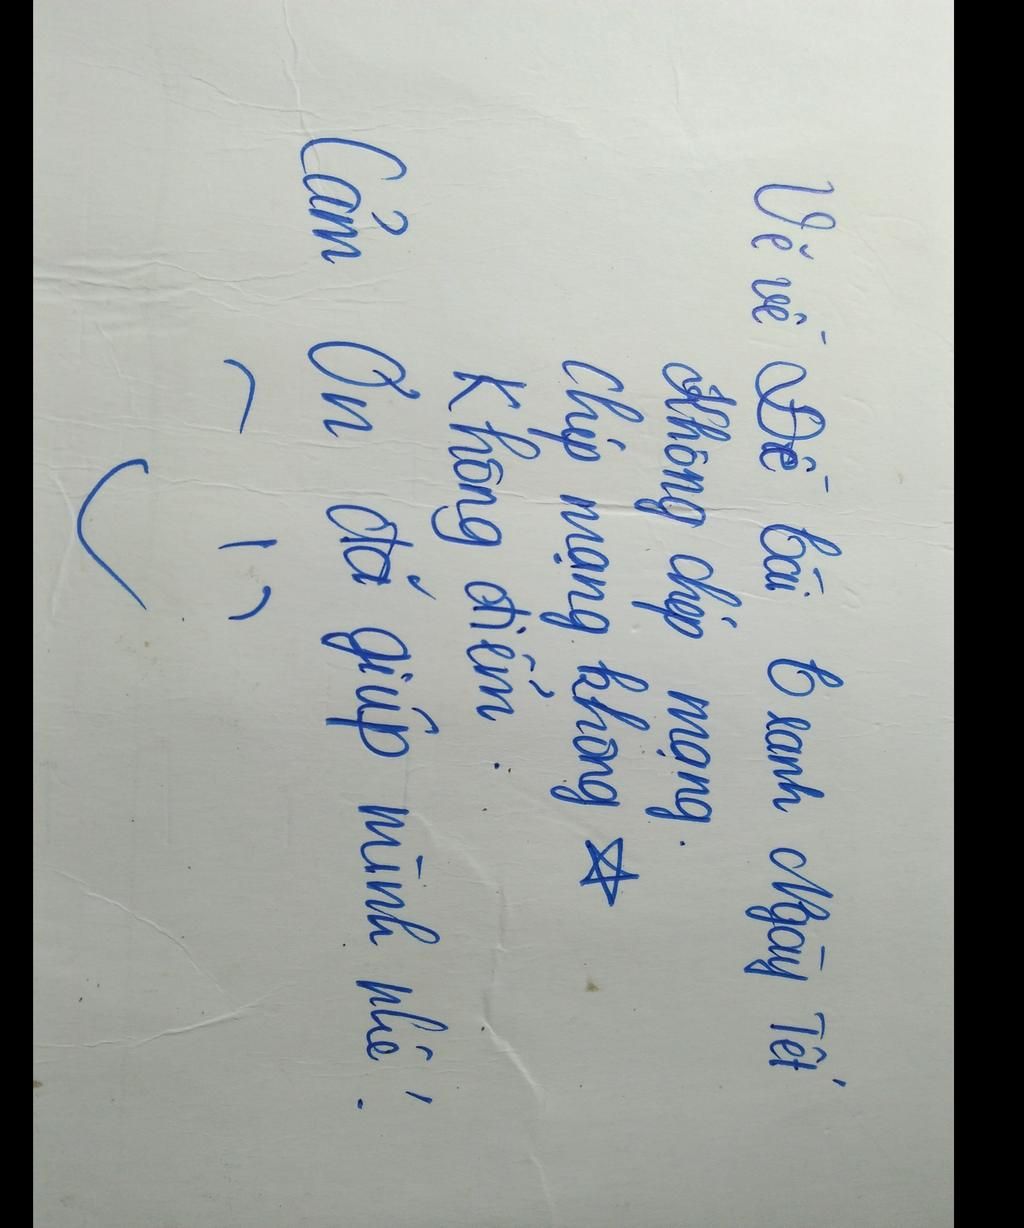 Vẽ về Đề bài tranh Ngày Tết
Không chép mạng.
Chép mạng không ☆
Không điểm.
Cảm Ơn đã giúp mình nhé!